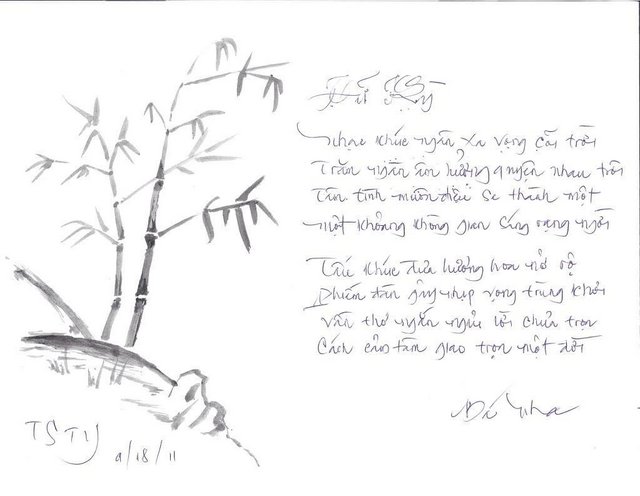 Nhạc khúc ngân xa vọng cõi trời
Trăm ngàn âm hưởng quyện nhau trôi
Tâm tình muôn điệu se thành một
Một khoảng không gian sáng rạng ngời
Tấu khúc đưa hương hoa nở rộ
Phím đàn gây nhịp vọng trùng khơi
Vần thơ ngắn ngủi lời chưa trọn
Cách cảm tâm giao trọn một đời
TSTV
9/18/11